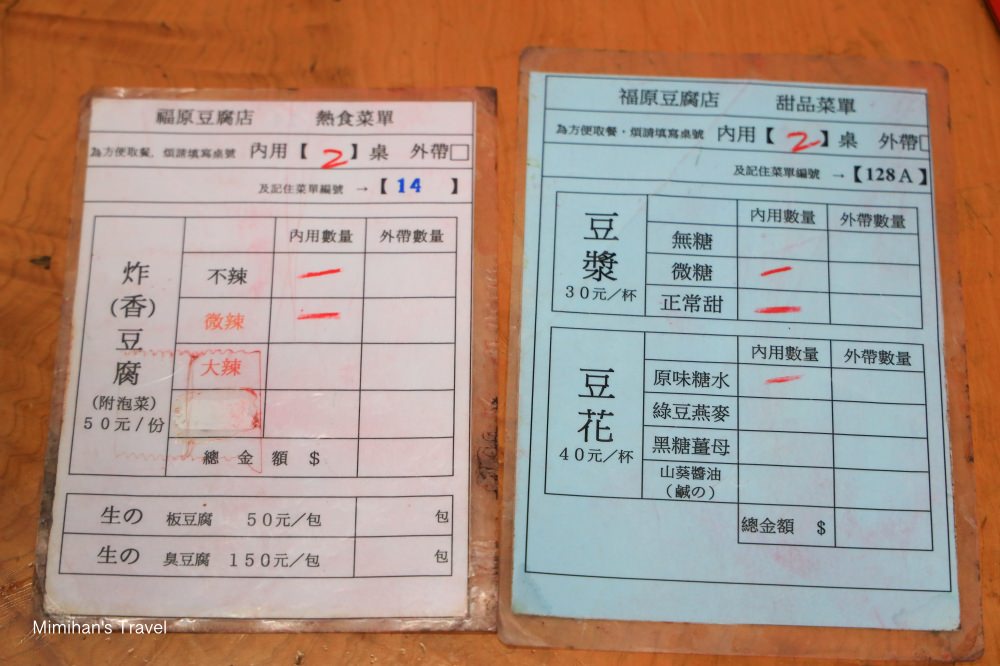 福原豆腐店 熱食菜單
為方便取餐，煩請填寫桌號 內用【2】桌 外帶□
及記住菜單編號 →【14】
內用數量 外帶數量
炸(香)豆腐
(附泡菜)
50元/份
不辣 一
微辣 一
大辣
總金額 $
生の 板豆腐 50元/包 包
生の 臭豆腐 150元/包 包
福原豆腐店 甜品菜單
為方便取餐，煩請填寫桌號 內用【2】桌 外帶□
及記住菜單編號 →【128A】
內用數量 外帶數量
豆漿
30元/杯
無糖
微糖 一
正常甜 一
內用數量 外帶數量
豆花
40元/杯
原味糖水 一
綠豆燕麥
黑糖薑母
山葵醬油
(鹹の)
總金額 $
Mimihan's Travel